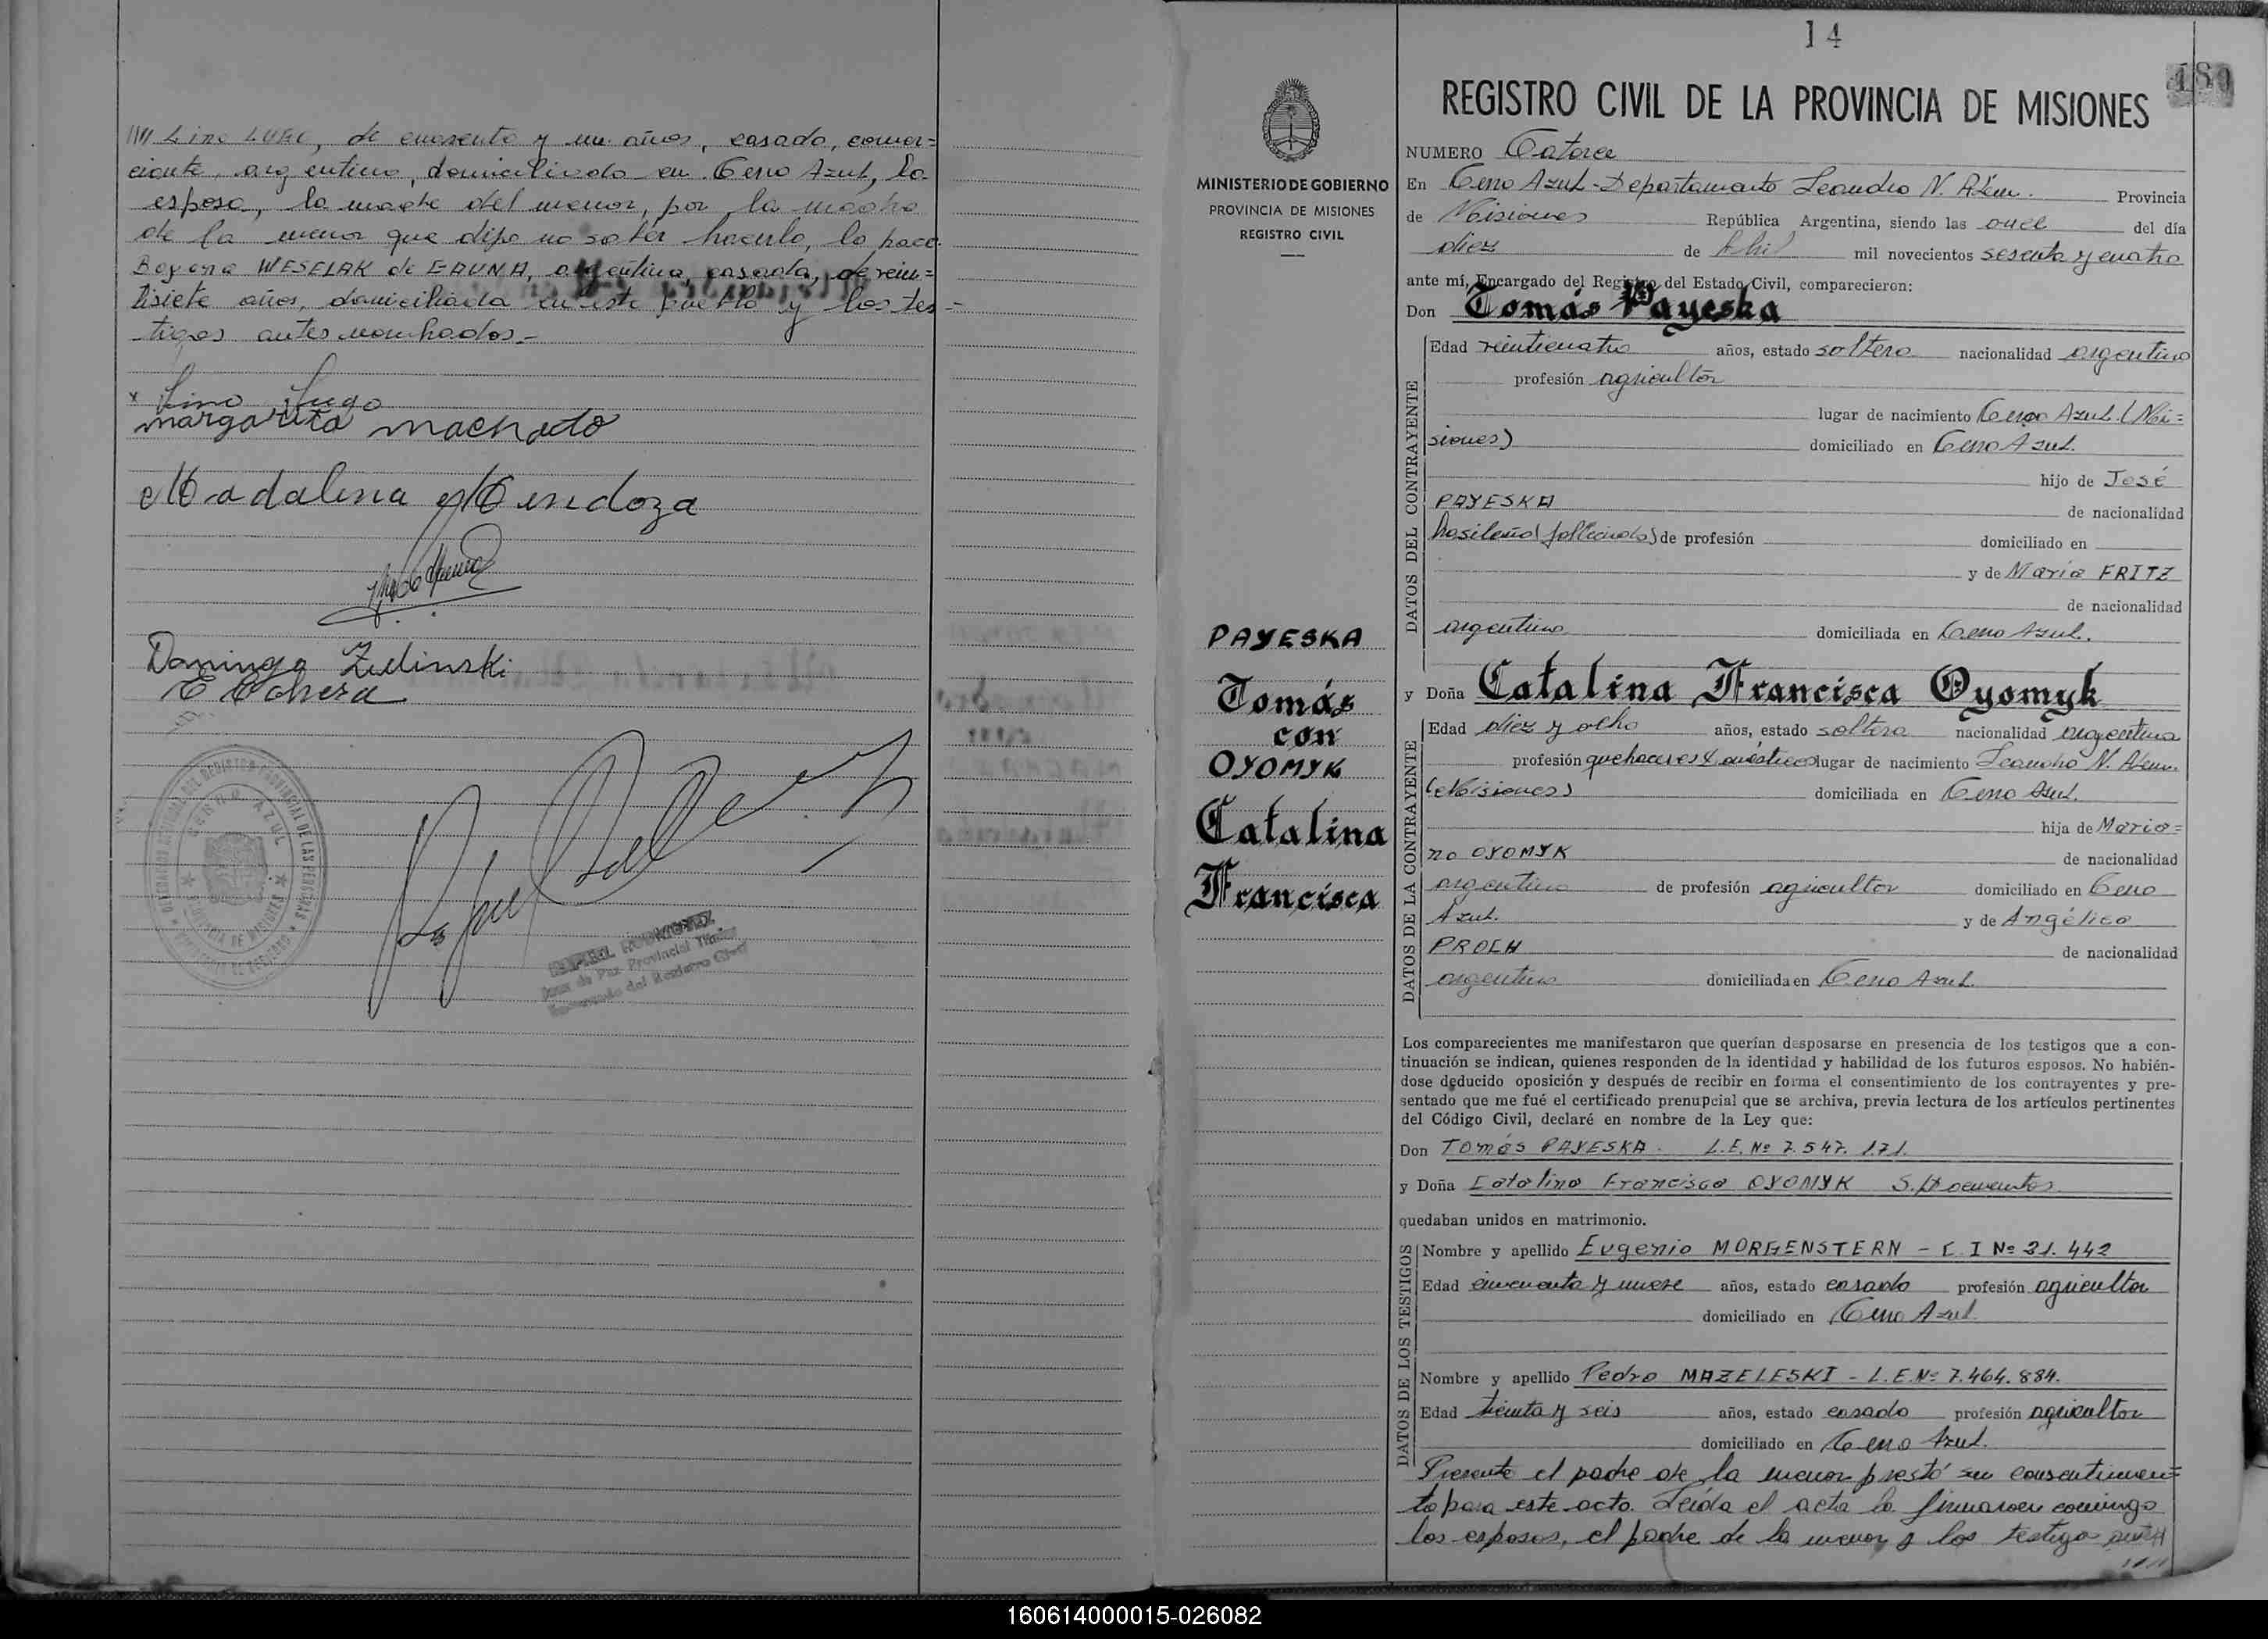 //// Lino LUGO, de cuarenta y un años, casado, comer=
ciante, argentino, domiciliado en Cerro Azul, la
esposa, la madre del menor, por la madre
de la menor que dijo no saber hacerlo, lo hace
WESELAK de GAUNA, argentina, casada, de vein=
tisiete años, domiciliada en este pueblo y los tes=
tigos antes nombrados.-
x Lino Lugo
margarita machado
Madalina Mendoza
Domingo Zulinski
SERRO AZUL
RAFAEL RODRIGUEZ
Juez de Paz Provincial
Encargado del Registro Civil
14
180
REGISTRO CIVIL DE LA PROVINCIA DE MISIONES
MINISTERIO DE GOBIERNO
PROVINCIA DE MISIONES
REGISTRO CIVIL
NUMERO Catorce
En Cerro Azul-Departamento Leandro N. Alem. Provincia
de Misiones República Argentina, siendo las once del día
diez de Abril mil novecientos sesenta y cuatro
ante mí, Encargado del Registro del Estado Civil, comparecieron:
Don Tomás Payeska
DATOS DEL CONTRAYENTE
Edad veinticuatro años, estado soltero nacionalidad argentino
profesión agricultor
lugar de nacimiento Cerro Azul (Mi=
siones) domiciliado en Cerro Azul.
hijo de José
PAYESKA de nacionalidad
brasileño (fallecido) de profesión domiciliado en
y de María FRITZ
de nacionalidad
argentina domiciliada en Cerro Azul.
y Doña Catalina Francisca Oyomyk
DATOS DE LA CONTRAYENTE
Edad diez y ocho años, estado soltera nacionalidad argentina
profesión quehaceres domésticos lugar de nacimiento Leandro N. Alem.
(Misiones) domiciliada en Cerro Azul.
hija de Maria=
no OYOMYK de nacionalidad
argentino de profesión agricultor domiciliado en Cerro
Azul. y de Angélica
PROCH de nacionalidad
argentina domiciliada en Cerro Azul.
PAYESKA
Tomás
con
OYOMYK
Catalina
Francisca
Los comparecientes me manifestaron que querían desposarse en presencia de los testigos que a con-
tinuación se indican, quienes responden de la identidad y habilidad de los futuros esposos. No habién-
dose deducido oposición y después de recibir en forma el consentimiento de los contrayentes y pre-
sentado que me fué el certificado prenupcial que se archiva, previa lectura de los artículos pertinentes
del Código Civil, declaré en nombre de la Ley que:
Don Tomás PAYESKA. L.E. Nº 7.547.171.
y Doña Catalina Francisca OYOMYK S./Documentos
quedaban unidos en matrimonio.
DATOS DE LOS TESTIGOS
Nombre y apellido Eugenio MORGENSTERN - C. I Nº 31.442
Edad cincuenta y nueve años, estado casado profesión agricultor
domiciliado en Cerro Azul
Nombre y apellido Pedro MAZELESKI - L.E.Nº 7.464.884.
Edad treinta y seis años, estado casado profesión agricultor
domiciliado en Cerro Azul.
Presente el padre de la menor prestó su consentimien=
to para este acto. Leída el acta la firmaron conmigo
los esposos, el padre de la menor y los testigo
160614000015-026082